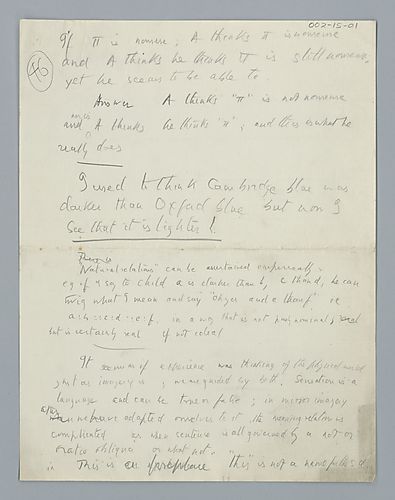 002-15-01
If π is nonsense, A thinks π is nonsense
and A thinks he thinks π is still nonsense,
yet he seems to be able to.
56
Answer A thinks "π" is not nonsense
and A thinks he thinks "π", and this is what he
really does
I used to think Cambridge blue was
darker than Oxford blue but now I
see that it is lighter!
"Natural relations" can be ascertained empirically.
eg if I say to child a is darker than b, c than d, he can
twig what I mean and say "oh yes and e than f" ie
in a way that is not nominal,
but is certainly real if not ideal
It seems as if experience was thinking of the physical world
just as imagery is; we are guided by both. Sensation is a
language and can be true or false; in mirror imagery
we have adapted ourselves to it, the meaning relation is
complicated as when sentence is all governed by a not- or
oratio obliqua or what not.
This is "This" is not a name